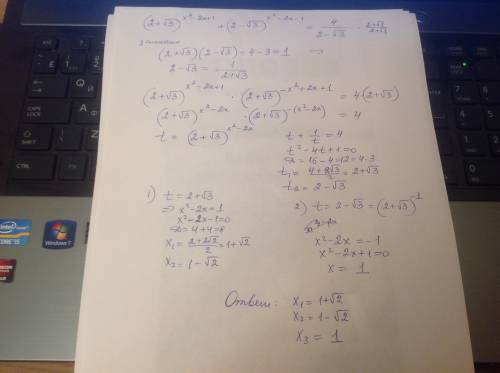 (2+√3)^(x²-2x+1) + (2-√3)^(x²-2x-1) = 4/(2-√3) · (2+√3)/(2+√3)
(2+√3)(2-√3) = 4-3 = 1 ⇒
2-√3 = 1/(2+√3)
(2+√3)^(x²-2x+1) · (2+√3)^(-x²+2x+1) = 4(2+√3)
(2+√3)^(x²-2x) · (2+√3)^(-(x²-2x)) = 4
t = (2+√3)^(x²-2x)
t + 1/t = 4
t² - 4t + 1 = 0
D = 16 - 4 = 12 = 4·3
t₁ = (4+2√3)/2 = 2+√3
t₂ = 2-√3
1) t = 2+√3
⇒ x²-2x = 1
x²-2x-1=0
D = 4+4=8
x₁ = (2+2√2)/2 = 1+√2
x₂ = 1-√2
2) t = 2-√3 = (2+√3)^(-1)
x²-2x = -1
x²-2x+1=0
x = 1
Ответ: x₁ = 1+√2
x₂ = 1-√2
x₃ = 1
Windows 7
CORE i5